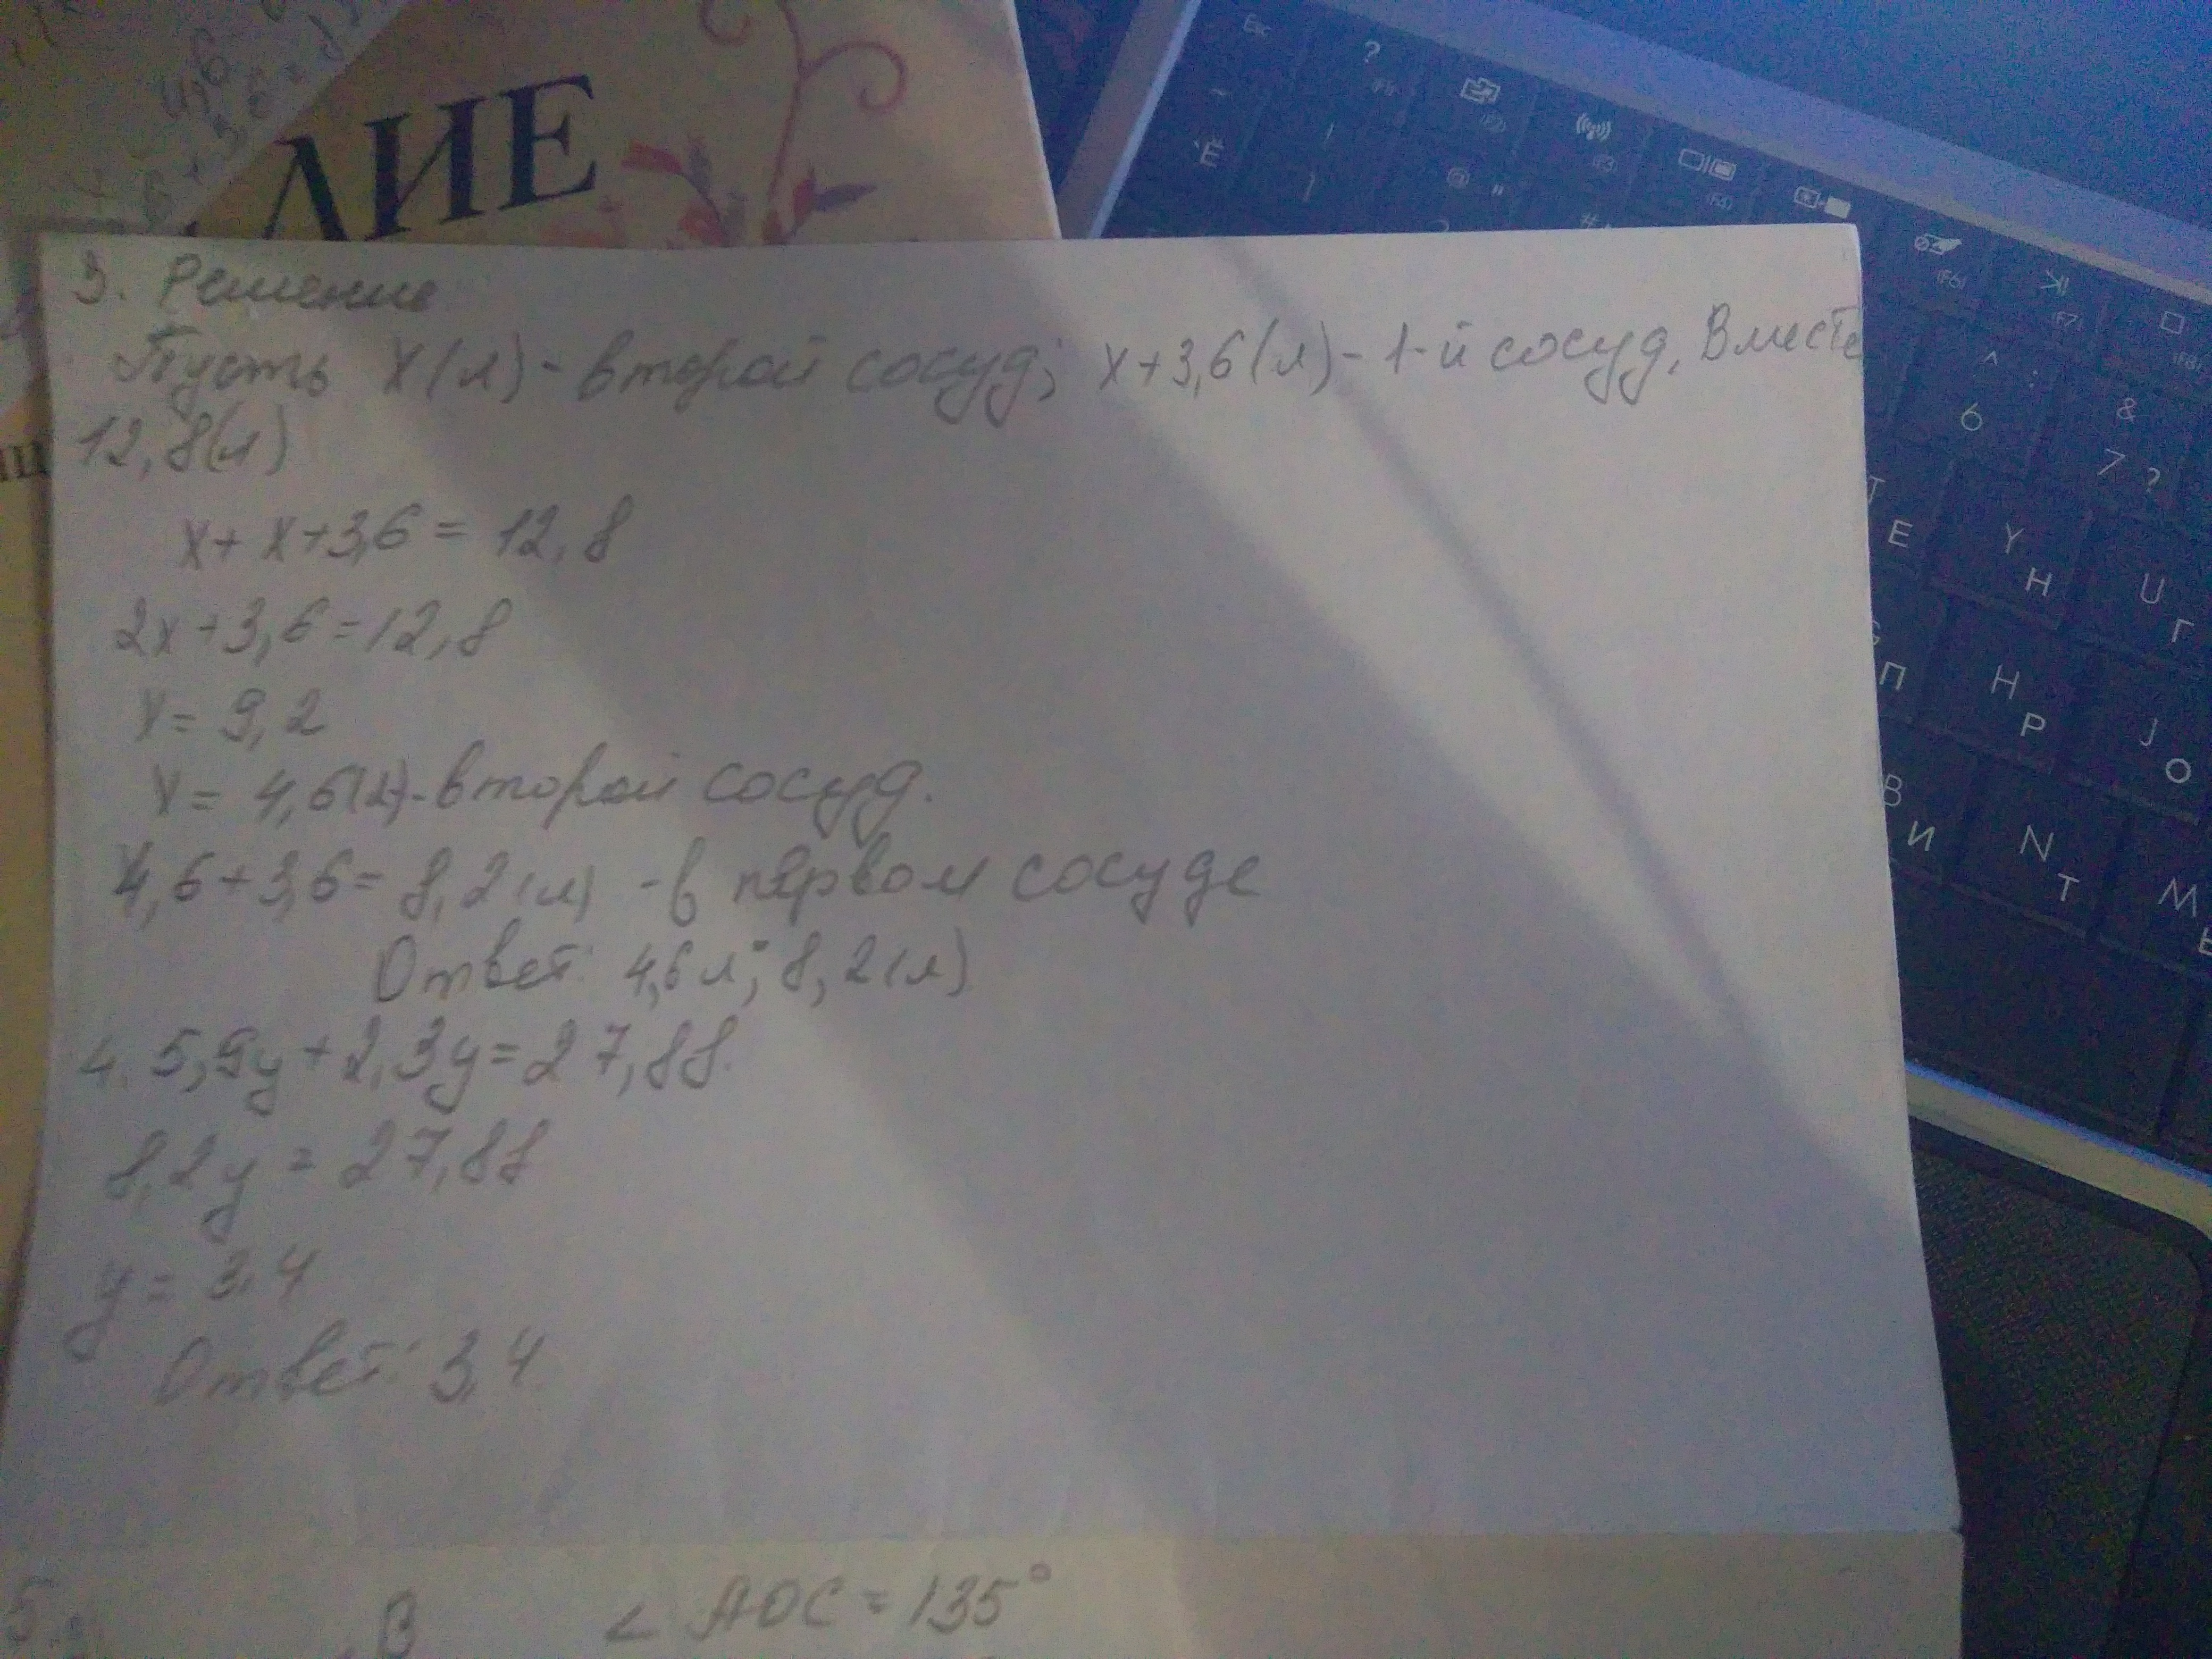 ЛИЕ
3. Решение
Пусть х(л) - второй сосуд; х+3,6(л) - 1-й сосуд, Вместе
12,8(л)
х+ х+3,6 = 12,8
2х+3,6=12,8
х= 9,2
х= 4,6(л)-второй сосуд.
4,6+3,6= 8,2(л) -в первом сосуде
Ответ: 4,6л; 8,2(л)
4. 5,9у+2,3у=27,88.
8,2у = 27,88
у= 3,4
Ответ: 3,4
5.
В
∠ АОС = 135°
Esc
?
(F2)
(F3)
(F4)
(F6)
(F7)
~
Ё
!
1
@ "
#
^ :
6
&
7 ?
T
Е
Y
Н
U
Г
G
П
H
Р
J
О
B
И
N
Т
M
Ь